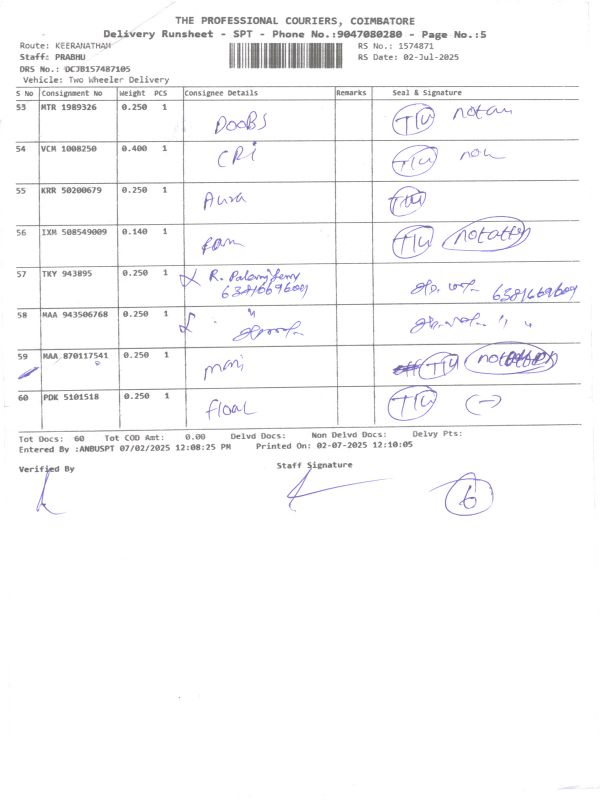 THE PROFESSIONAL COURIERS, COIMBATORE
Delivery Runsheet - SPT - Phone No.:9047080280 - Page No.:5
Route: KEERANATHAM
RS No.: 1574871
Staff: PRABHU
RS Date: 02-Jul-2025
DRS No.: DCJB157487105
Vehicle: Two Wheeler Delivery
S No Consignment No Weight PCS Consignee Details Remarks Seal & Signature
53 MTR 1989326 0.250 1 DOOBS
54 VCM 1008250 0.400 1 CRi
55 KRR 50200679 0.250 1 Aura
56 IXM 508549009 0.140 1
57 TKY 943895 0.250 1 R.
6381669609 6381669609
58 MAA 943506768 0.250 1 " " "
59 MAA 870117541 0.250 1 mani
60 PDK 5101518 0.250 1 float (-)
Tot Docs: 60 Tot COD Amt: 0.00 Delvd Docs: Non Delvd Docs: Delvy Pts:
Entered By :ANBUSPT 07/02/2025 12:08:25 PM Printed On: 02-07-2025 12:10:05
Verified By
Staff Signature
6